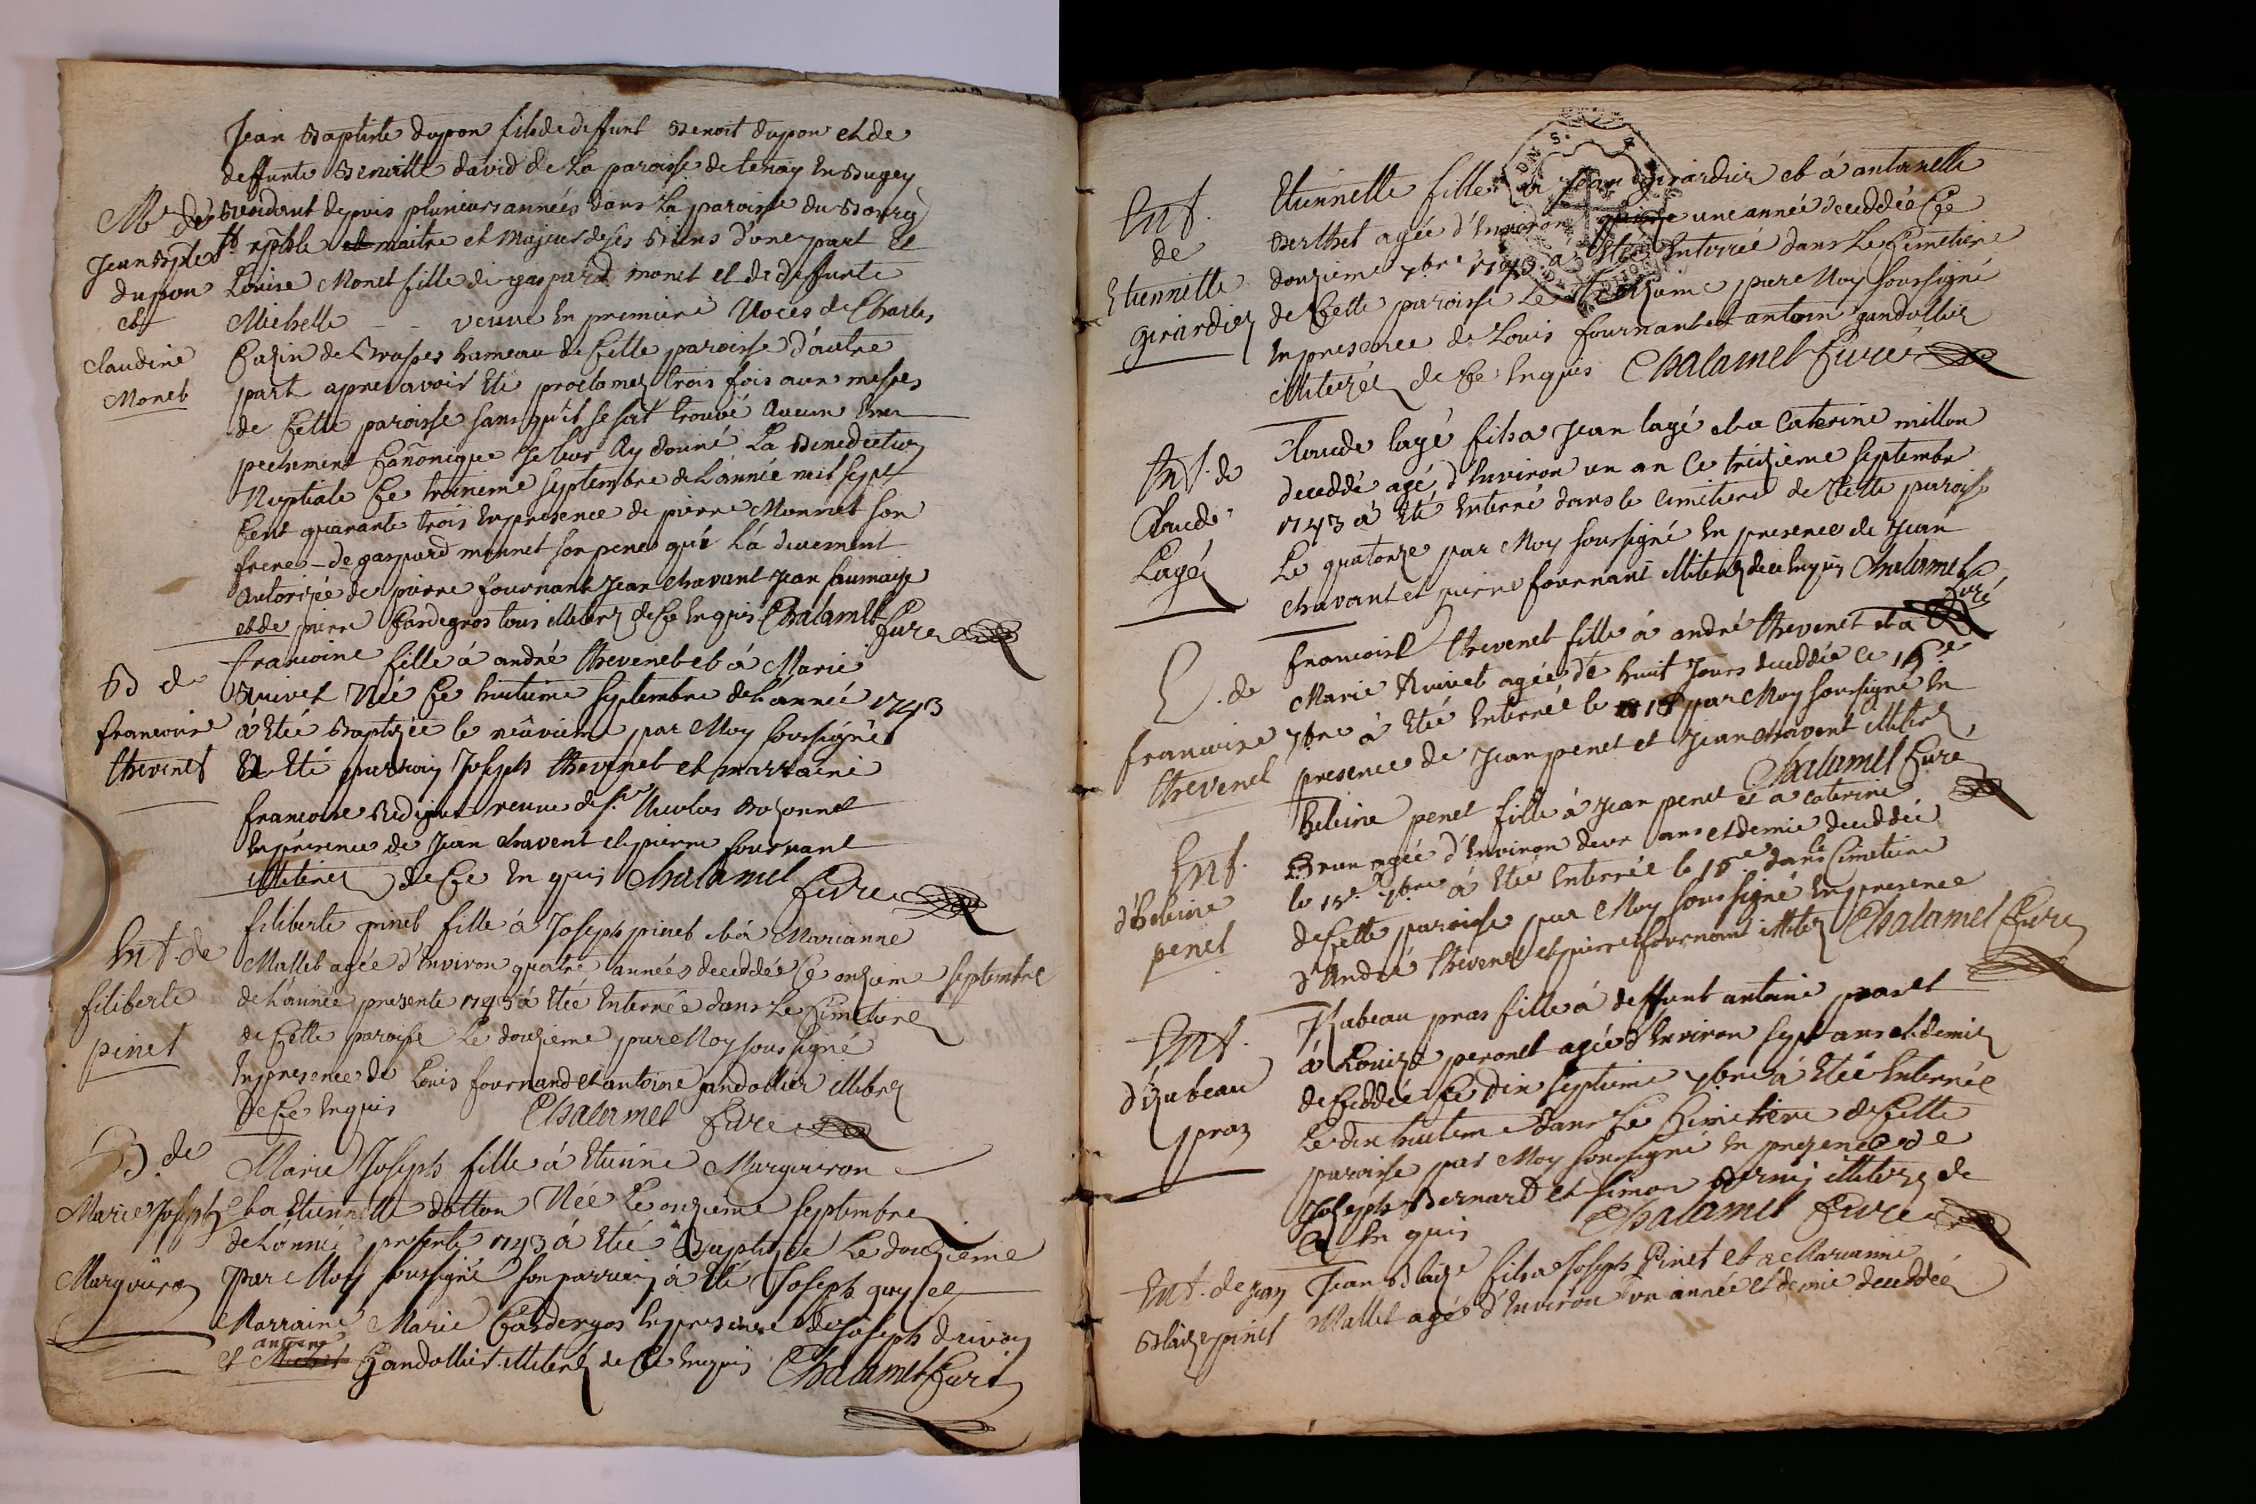 Jean Baptiste dupon fils de deffunt Benoit dupon et de
deffunte Benoitte david de La paroisse de tenay en Bugey
Mre de
Jean Bpte
dupon
et
Claudine
Monet
Residant depuis plusieurs années dans La paroisse du Bourg
maitre et Majeur de ses Biens d'une part Et
Louise Monet fille de gaspard monet et de deffunte
Michelle - - veuve en premiere Noces de Charles
Cuzin de hameau de Cette paroisse d'autre
part apres avoir Eté proclamez trois fois aux messes
de Cette paroisse sans qu'il se soit trouvé aucun Em
pechement Cañonique Je leur Ay donné La Benediction
Nuptiale Ce troisieme septembre de L'année mil sept
Cent quarante trois En presence de pierre Monnet son
frere - de gaspard monnet son pere qui L'a duement
Autorisée de pierre fournant Jean Chavant Jean Saumaise
et de pierre Cardegros tous illiterez de Ce Enquis Chalamel Curé
B de
francoise
thevenet
francoise fille à andré thevenet et à Marie
Ruivet Née Ce huitieme septembre de L'année 1743
à Eté Baptizée le neuvieme par Moy soussigné
Et Eté parrain Joseph thevenet et marraine
francoise veuve de sr Nicolas Bozonnet
En présence de Jean Chavent et pierre fournant
illiterez de Ce Enquis Chalamel
Curé
Ent. de
filiberte
pinet
filiberte pinet fille à Joseph pinet et à Marianne
Mallet agée d'Environ quatre années deceddée Ce onzieme septembre
de L'année presente 1743 à Etée Enterrée dans Le Cimetiere
de Cette paroisse Le douzieme par Moy soussigné
En presence de Louis fournand et antoine gandollier illiterez
de Ce Enquis Chalamel Curé
B. de
Marie Joseph
Margueron
Marie Joseph fille à Etienne Margueron
et a Etiennette dotton Née Le onzieme Septembre
de L'année presente 1743 à Eté Baptizée Le douzieme
par Moy soussigné son parrain à Eté Joseph guy et
Marraine Marie Cardegros En presence de Joseph drivon
antoine
et Gandollier illiterez de Ce Enquis Chalamel Curé
Ent.
de
Etiennette
girardier
Etiennette fille à Jean girardier et à antoinette
Berthet agée d'Environ une année deceddée Ce
douzieme 7bre 1743 à Etée Enterrée dans Le Cimetiere
de Cette paroisse Le treizieme par Moy soussigné
En presence de Louis fournant et antoin gandollier
illiterez de Ce Enquis Chalamel Curé
Ent. de
Claude
Lagé
Claude lagé fils a Jean lagé et a Caterine millon
deceddé agé d'Environ un an Ce treizieme septembre
1743 à Eté Enterré dans le Cimetiere de Cette paroisse
Le quatorze par Moy soussigné En presence de Jean
Chavant et pierre fournant illiterez de ce Enquis Chalamel
Curé
E. de
francoise
thevenet
francoise thevenet fille à andré thevenet et a
Marie Ruivet agée de huit Jours deceddée ce 15e
7bre à Etée Enterrée le par Moy soussigné En
presence de Jean penet et Jean Chavent illiterez
Chalamel Curé
Ent.
d'heleine
penet
heleine penet fille à Jean penet et a Caterine
Brun agée d'Environ deux ans et demie deceddée
le 15e 7bre à Etée Enterrée le 16e dans le Cimetiere
de Cette paroisse par Moy soussigné En presence
d'André thevenet et pierre fournant illiterez Chalamel Curé
Ent.
d'Izabeau
praz
Izabeau pras fille à deffunt antoine praz et
à Louize peronet agée d'Environ sept ans et demie
deCeddée Ce dix septieme 7bre à Etée Enterrée
Le dix huitieme dans Le Cimetiere de Cette
paroisse par Moy soussigné En presence de
Joseph Bernard et simon Berny illiterez de
Ce Enquis Chalamel Curé
Ent. de Jean
Blaize pinet
Jean Blaize fils a Joseph Pinet et a Marianne
Mallet agé d'Environ un année et demie deceddée